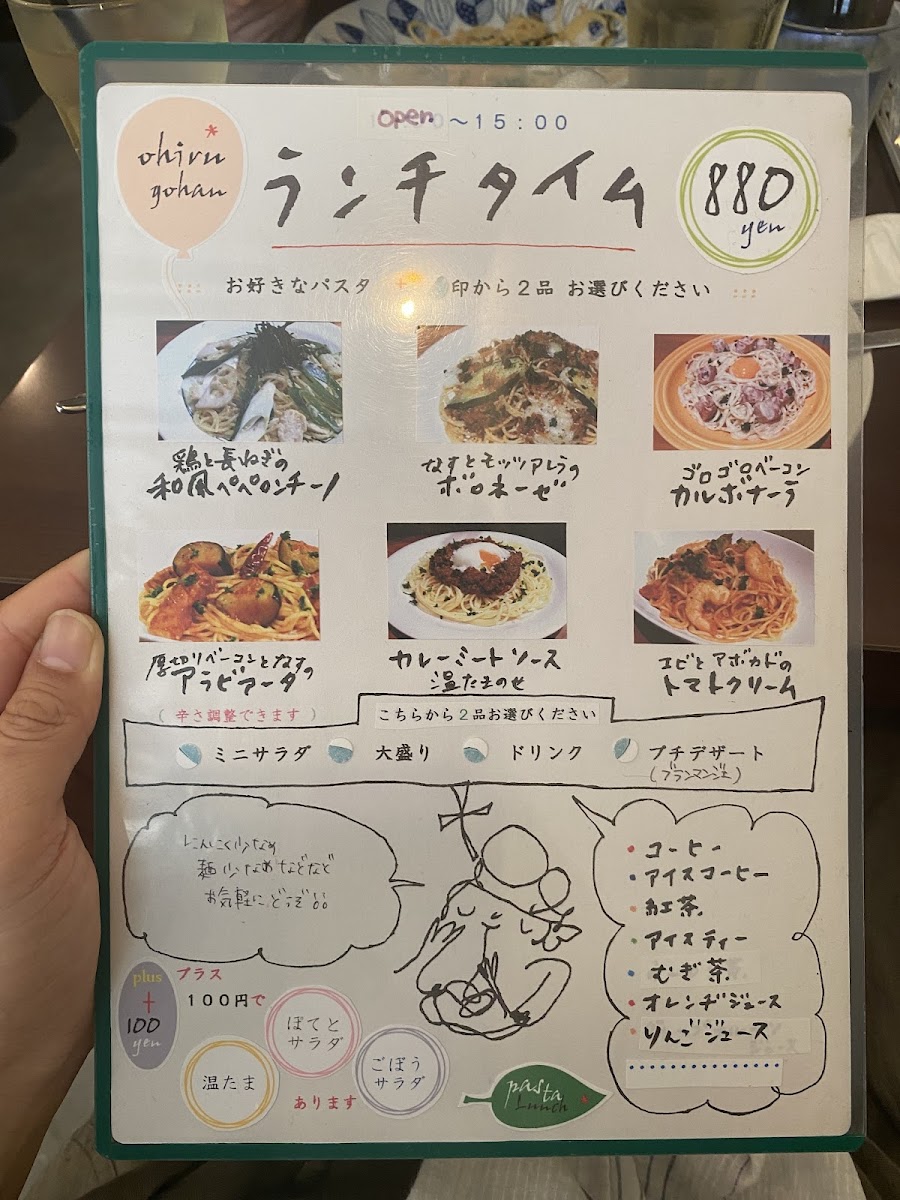 ohiru
gohan
open～15：00
ランチタイム
880
yen
お好きなパスタ + 印から2品 お選びください
鶏と長ねぎの
和風ペペロンチーノ
なすとモッツアレラの
ボロネーゼ
ゴロゴロベーコン
カルボナーラ
厚切りベーコンとなすの
アラビアータ
(辛さ調整できます)
カレーミートソース
温たまのせ
エビとアボカドの
トマトクリーム
こちらから2品お選びください
ミニサラダ 大盛り ドリンク プチデザート
(ブランマンジェ)
にんにく少なめ
麺少なめなどなど
お気軽にどうぞ
・コーヒー
・アイスコーヒー
・紅茶
・アイスティー
・むぎ茶
・オレンヂジュース
・りんごジュース
plus
+
100
yen
プラス
100円で
ぽてと
サラダ
温たま
ごぼう
サラダ
あります
pasta
Lunch